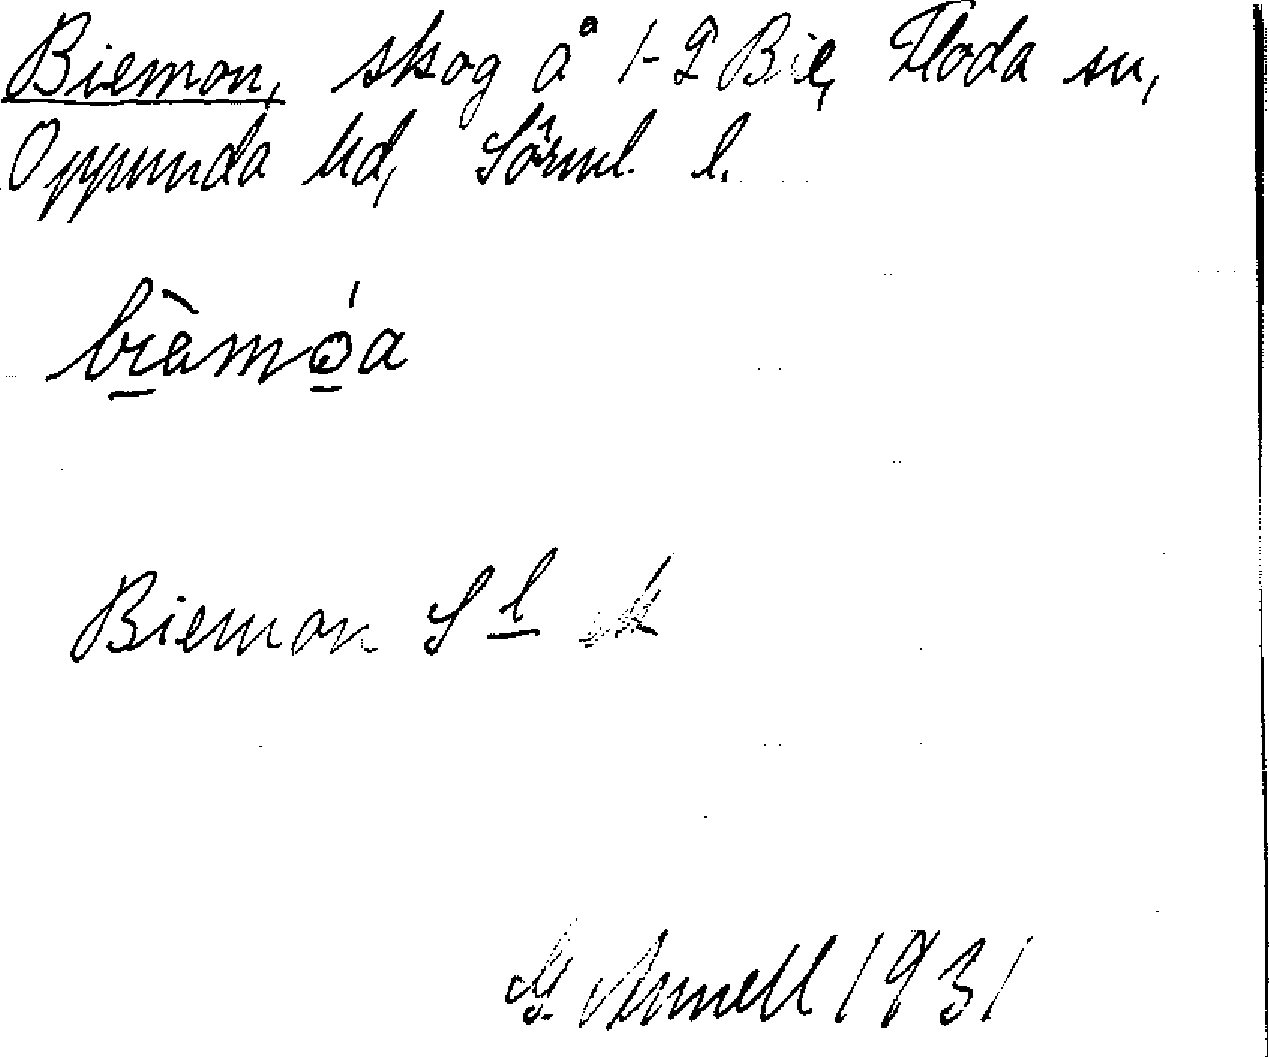 Biemon, skog å 1-2 Bie, Floda sn,
Oppunda hd, Sörml. l.
bi̱èmó̱a
Biemon S l
G. Annell 1931